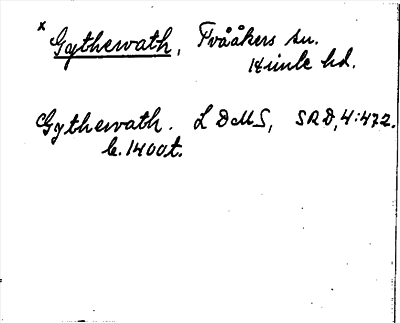 x Gytherwath, Tvååkers sn.
Himle hd.
Gytherwath. LDMS, SRD, 4:472.
b. 1400t.